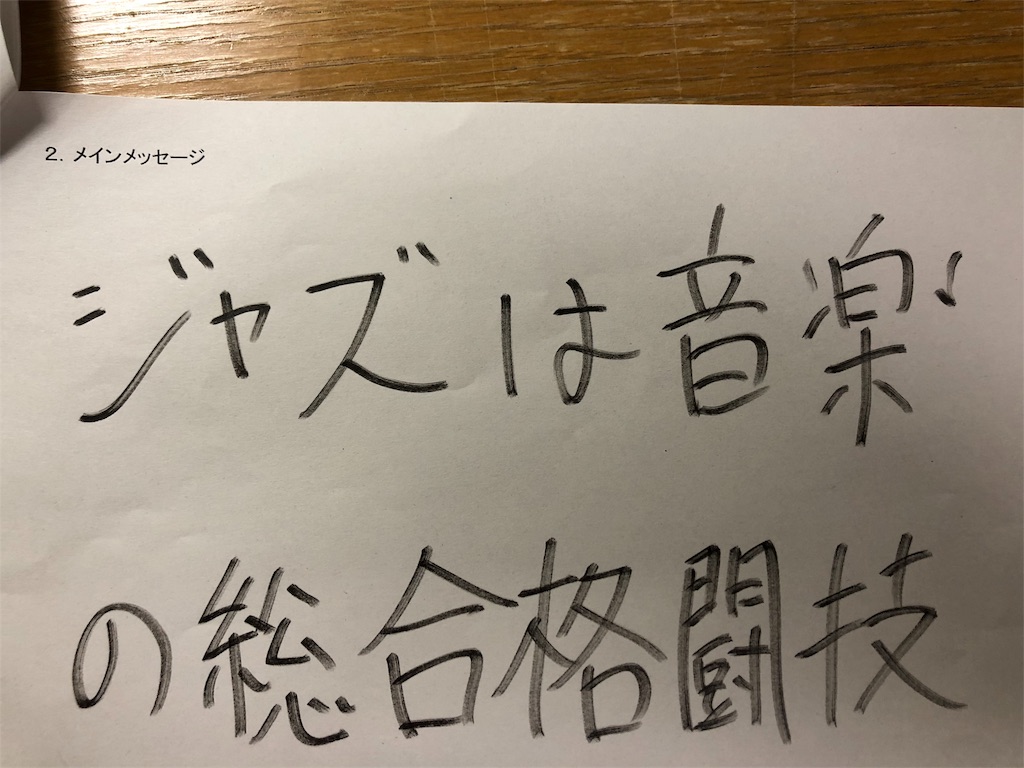 2. メインメッセージ
ジャズは音楽
の総合格闘技